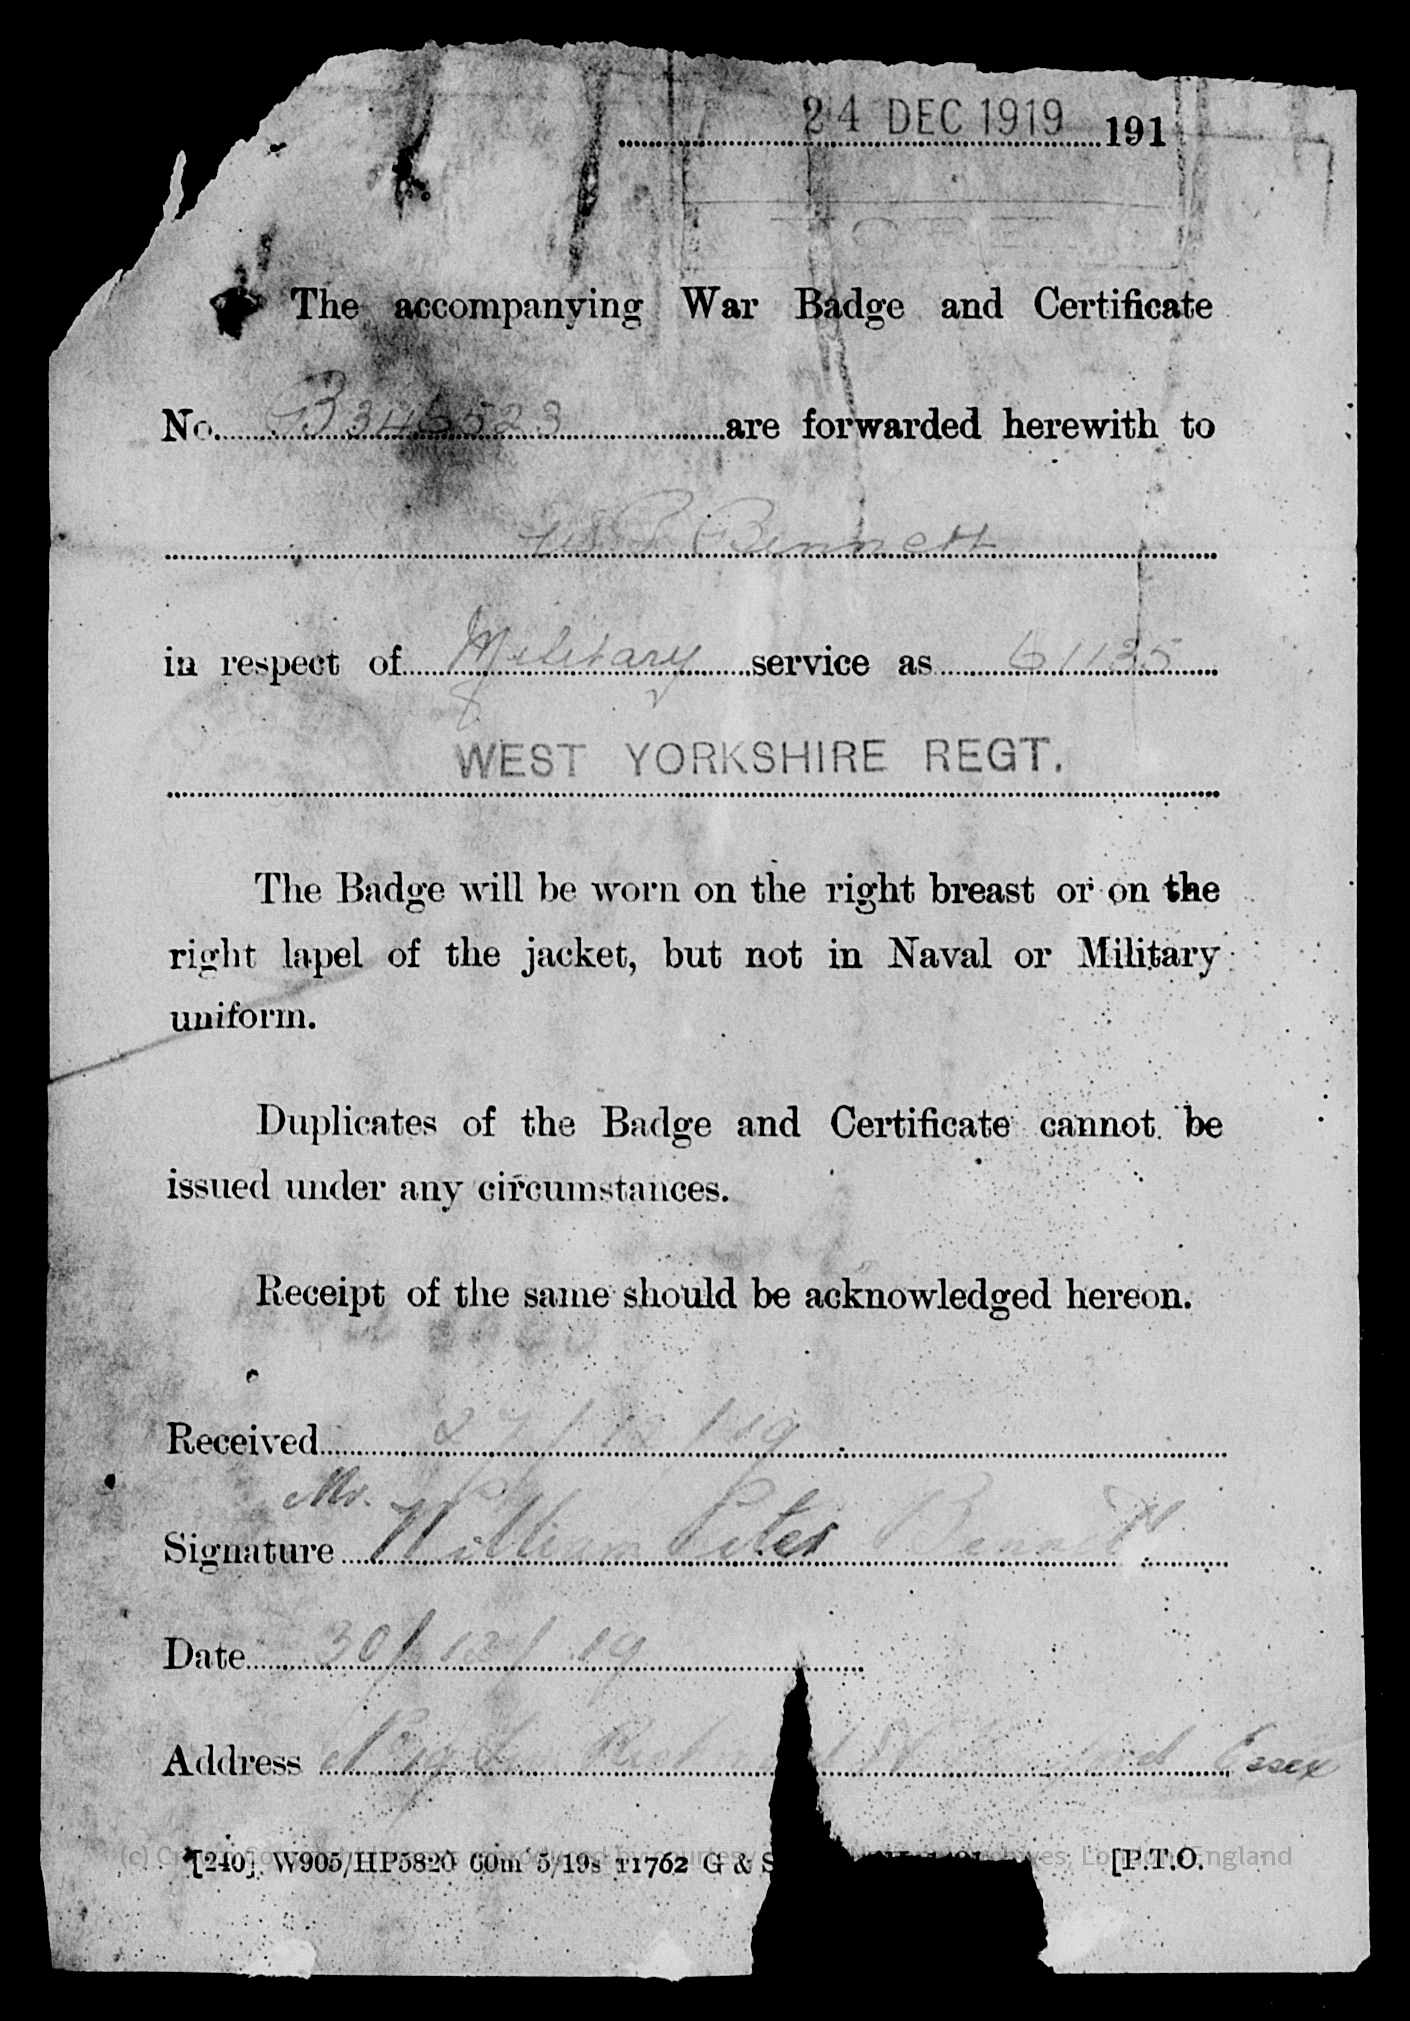 24 DEC 1919 191
The accompanying War Badge and Certificate
No. B346523 are forwarded herewith to
W. P. Bennett
in respect of Military service as 61135
WEST YORKSHIRE REGT.
The Badge will be worn on the right breast or on the
right lapel of the jacket, but not in Naval or Military
uniform.
Duplicates of the Badge and Certificate cannot be
issued under any circumstances.
Receipt of the same should be acknowledged hereon.
Received 27/12/19
Mr.
Signature William Peter Bennett
Date 30/12/19
Address Essex
[240]. W905/HP5820 60m 5/19s 11762 G & S [P.T.O.
London, England